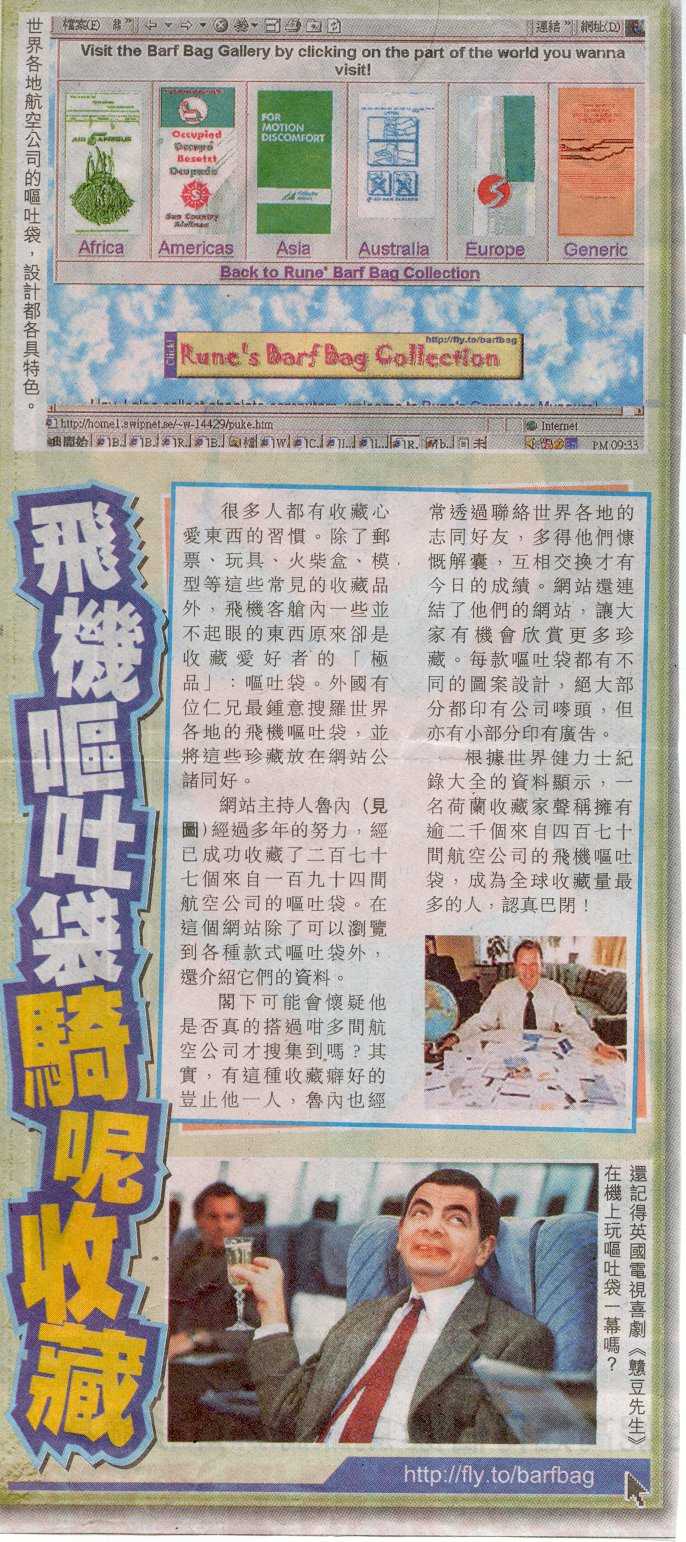 世界各地航空公司的嘔吐袋，設計都各具特色。
檔案(E)
連結
網址(D)
Visit the Barf Bag Gallery by clicking on the part of the world you wanna
visit!
AIR AFRIQUE
Occupied
Occupé
Besetzt
Ocupado
Sun Country
Airlines
FOR
MOTION
DISCOMFORT
Africa
Americas
Asia
Australia
Europe
Generic
Back to Rune' Barf Bag Collection
Click!
http://fly.to/barfbag
Rune's Barf Bag Collection
http://home1.swipnet.se/~w-14429/puke.htm
Internet
開始
PM 09:33
飛機嘔吐袋騎呢收藏
很多人都有收藏心
愛東西的習慣。除了郵
票、玩具、火柴盒、模
型等這些常見的收藏品
外，飛機客艙內一些並
不起眼的東西原來卻是
收藏愛好者的「極
品」：嘔吐袋。外國有
位仁兄最鍾意搜羅世界
各地的飛機嘔吐袋，並
將這些珍藏放在網站公
諸同好。
網站主持人魯內（見
圖）經過多年的努力，經
已成功收藏了二百七十
七個來自一百九十四間
航空公司的嘔吐袋。在
這個網站除了可以瀏覽
到各種款式嘔吐袋外，
還介紹它們的資料。
閣下可能會懷疑他
是否真的搭過咁多間航
空公司才搜集到嗎？其
實，有這種收藏癖好的
豈止他一人，魯內也經
常透過聯絡世界各地的
志同好友，多得他們慷
慨解囊，互相交換才有
今日的成績。網站還連
結了他們的網站，讓大
家有機會欣賞更多珍
藏。每款嘔吐袋都有不
同的圖案設計，絕大部
分都印有公司嘜頭，但
亦有小部分印有廣告。
根據世界健力士紀
錄大全的資料顯示，一
名荷蘭收藏家聲稱擁有
逾二千個來自四百七十
間航空公司的飛機嘔吐
袋，成為全球收藏量最
多的人，認真巴閉！
還記得英國電視喜劇《戇豆先生》
在機上玩嘔吐袋一幕嗎？
http://fly.to/barfbag